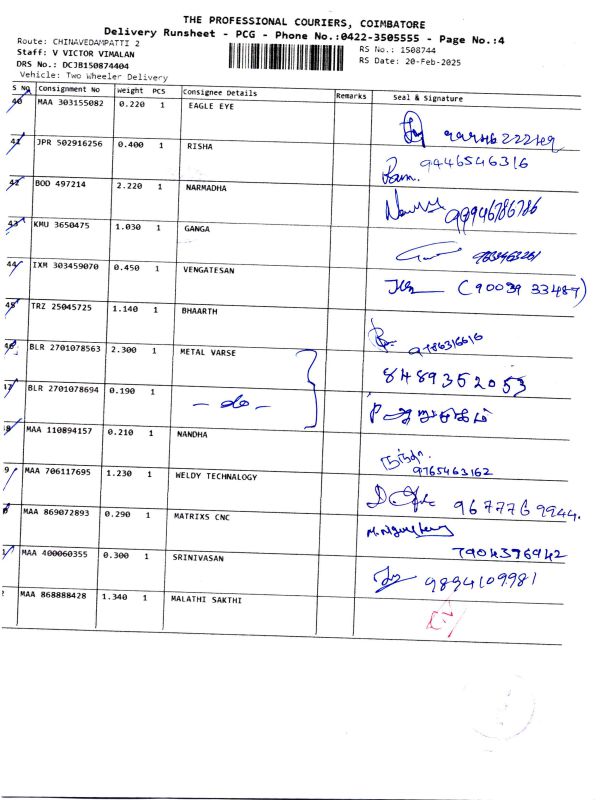 THE PROFESSIONAL COURIERS, COIMBATORE
Delivery Runsheet - PCG - Phone No.:0422-3505555 - Page No.:4
Route: CHINAVEDAMPATTI 2
RS No.: 1508744
Staff: V VICTOR VIMALAN
RS Date: 20-Feb-2025
DRS No.: DCJB150874404
Vehicle: Two Wheeler Delivery
S No Consignment No Weight PCS Consignee Details Remarks Seal & Signature
40 MAA 303155082 0.220 1 EAGLE EYE
41 JPR 502916256 0.400 1 RISHA 9446546316
Ram.
42 BOD 497214 2.220 1 NARMADHA
43 KMU 3650475 1.030 1 GANGA
44 IXM 303459070 0.450 1 VENGATESAN (90039 33487)
45 TRZ 25045725 1.140 1 BHAARTH 9786316616
46 BLR 2701078563 2.300 1 METAL VARSE 8489352053
47 BLR 2701078694 0.190 1 - do -
8 MAA 110894157 0.210 1 NANDHA நந்தா 9765463162
9 MAA 706117695 1.230 1 WELDY TECHNALOGY 9677769944.
MAA 869072893 0.290 1 MATRIXS CNC 7904376942
1 MAA 400060355 0.300 1 SRINIVASAN 9894109981
2 MAA 868888428 1.340 1 MALATHI SAKTHI